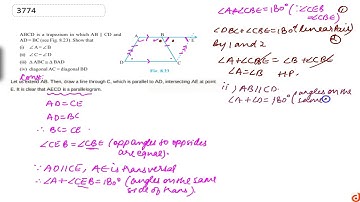 3774
ABCD is a trapezium in which AB || CD and
AD = BC (see Fig. 8.23). Show that
(i) ∠A = ∠B
(ii) ∠C = ∠D
(iii) ΔABC ≅ ΔBAD
(iv) diagonal AC = diagonal BD
A B E
D C
Fig. 8.23
Const:
Let us extend AB. Then, draw a line through C, which is parallel to AD, intersecting AE at point
E. It is clear that AECD is a parallelogram.
AD = CE
AD = BC
∴ BC = CE
∠CEB = ∠CBE (opp angles to opp sides
are equal).
∵ AD || CE, AE is transversal
∴ ∠A + ∠CEB = 180° (angles on the same
side of trans).
∠A + ∠CBE = 180° (∵ ∠CEB
= ∠CBE) 1
∠DBC + ∠CBE = 180° (linear pair) 2
by 1 and 2
∠A + ∠CBE = ∠B + ∠CBE
∠A = ∠B H.P.
ii) AB || CD
∠A + ∠D = 180° (angles on the
same